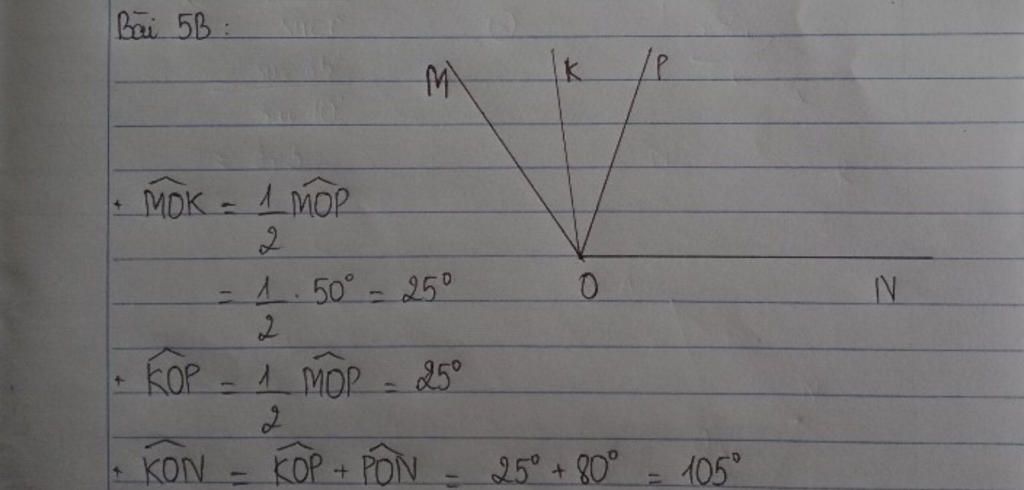 Bài 5B:
M K P
O N
+ \widehat{MOK} = \frac{1}{2} \widehat{MOP}
= \frac{1}{2} . 50° = 25°
+ \widehat{KOP} = \frac{1}{2} \widehat{MOP} = 25°
+ \widehat{KON} = \widehat{KOP} + \widehat{PON} = 25° + 80° = 105°